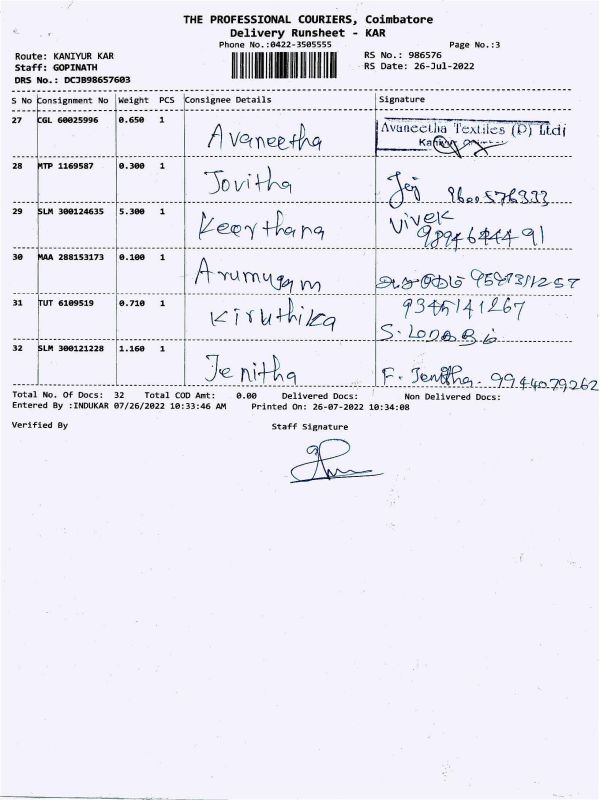 THE PROFESSIONAL COURIERS, Coimbatore
Delivery Runsheet - KAR
Phone No.:0422-3505555 Page No.:3
Route: KANIYUR KAR RS No.: 986576
Staff: GOPINATH RS Date: 26-Jul-2022
DRS No.: DCJB98657603
S No Consignment No Weight PCS Consignee Details Signature
27 CGL 60025996 0.650 1 Avaneetha Avaneetha Textiles (P) Ltd
28 MTP 1169587 0.300 1 Jovitha 9600576333
29 SLM 300124635 5.300 1 Keerthana Vivek
9894644491
30 MAA 288153173 0.100 1 Arumugam
31 TUT 6109519 0.710 1 Kiruthika 9345141267
32 SLM 300121228 1.160 1 Jenitha F. Jenitha. 9944079262
Total No. Of Docs: 32 Total COD Amt: 0.00 Delivered Docs: Non Delivered Docs:
Entered By :INDUKAR 07/26/2022 10:33:46 AM Printed On: 26-07-2022 10:34:08
Verified By Staff Signature